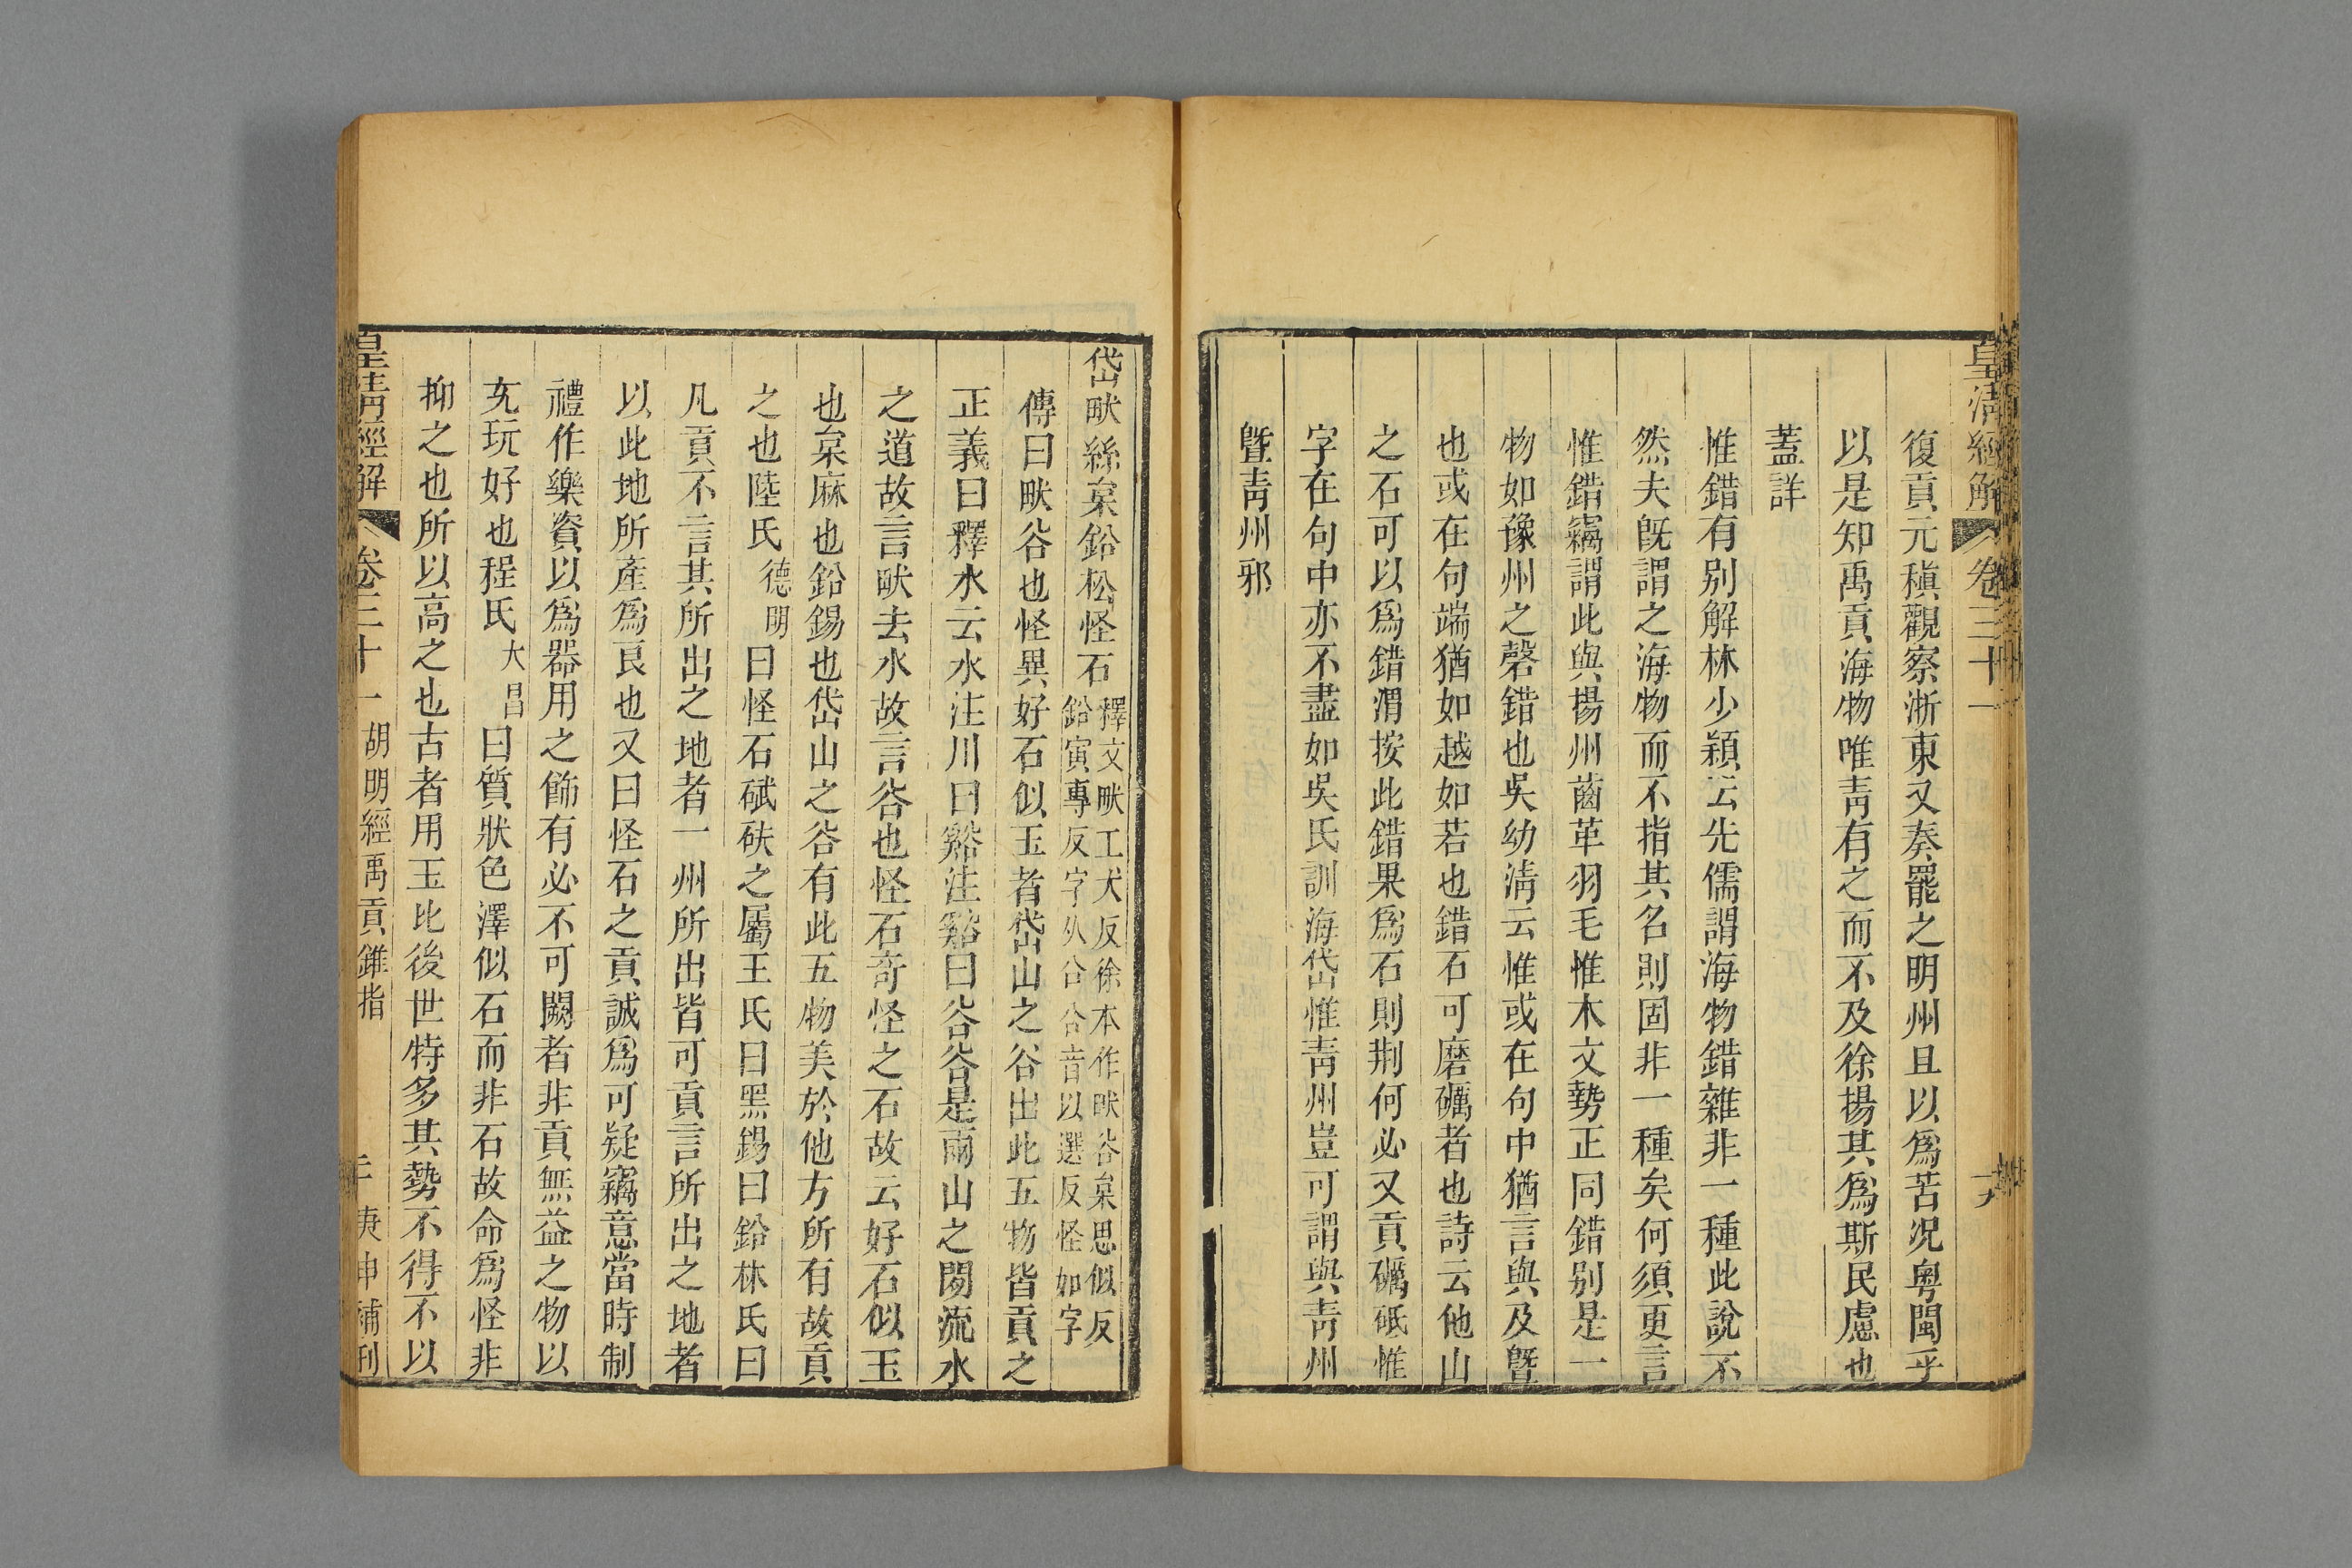 皇清經解 卷三十一
復貢元稹觀察浙東又奏罷之明州且以爲苦况粤閩乎
以是知禹貢海物唯靑有之而不及徐揚其爲斯民慮也
蓋詳
惟錯有别解林少穎云先儒謂海物錯雜非一種此說不
然夫旣謂之海物而不指其名則固非一種矣何須更言
惟錯竊謂此與揚州齒革羽毛惟木文勢正同錯别是一
物如豫州之磬錯也吳幼淸云惟或在句中猶言與及曁
也或在句端猶如越如若也錯石可磨礪者也詩云他山
之石可以爲錯渭按此錯果爲石則荆何必又貢礪砥惟
字在句中亦不盡如吳氏訓海岱惟靑州豈可謂與靑州
曁靑州邪
岱畎絲枲鉛松怪石
釋文畎工犬反徐本作畎谷枲思似反
鉛寅專反字从㕣㕣音以選反怪如字
傳曰畎谷也怪異好石似玉者岱山之谷出此五物皆貢之
正義曰釋水云水注川曰谿注谿曰谷谷是兩山之閒流水
之道故言畎去水故言谷也怪石奇怪之石故云好石似玉
也枲麻也鉛錫也岱山之谷有此五物美於他方所有故貢
之也陸氏德明曰怪石碔砆之屬王氏曰黑錫曰鉛林氏曰
凡貢不言其所出之地者一州所出皆可貢言所出之地者
以此地所產爲良也又曰怪石之貢誠爲可疑竊意當時制
禮作樂資以爲器用之飾有必不可闕者非貢無益之物以
充玩好也程氏大昌曰質狀色澤似石而非石故命爲怪非
抑之也所以高之也古者用玉比後世特多其勢不得不以
皇淸經解 卷三十一 胡明經禹貢錐指 庚申補刊